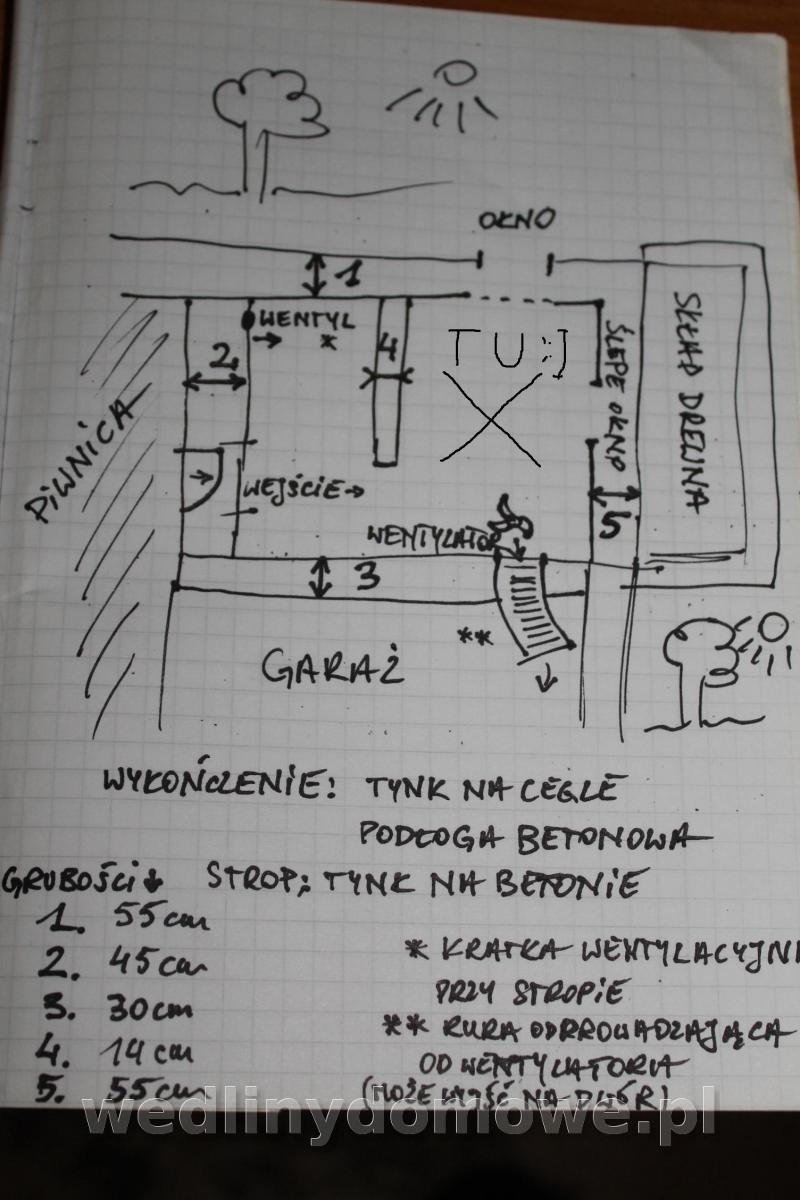 OKNO
1
WENTYL
*
2
4
TU :)
ŚLEPE OKNO
SKŁAD DREWNA
PIWNICA
WEJŚCIE
5
WENTYLATOR
3
**
GARAŻ
WYKOŃCZENIE: TYNK NA CEGLE
PODŁOGA BETONOWA
GRUBOŚCI STROP: TYNK NA BETONIE
1. 55cm
2. 45cm
3. 30cm
4. 14cm
5. 55cm
* KRATKA WENTYLACYJN
PRZY STROPIE
** RURA ODPROWADZAJĄCA
OD WENTYLATORA
(MOŻE WYJŚĆ NA DWÓR)
wedlinydomowe.pl